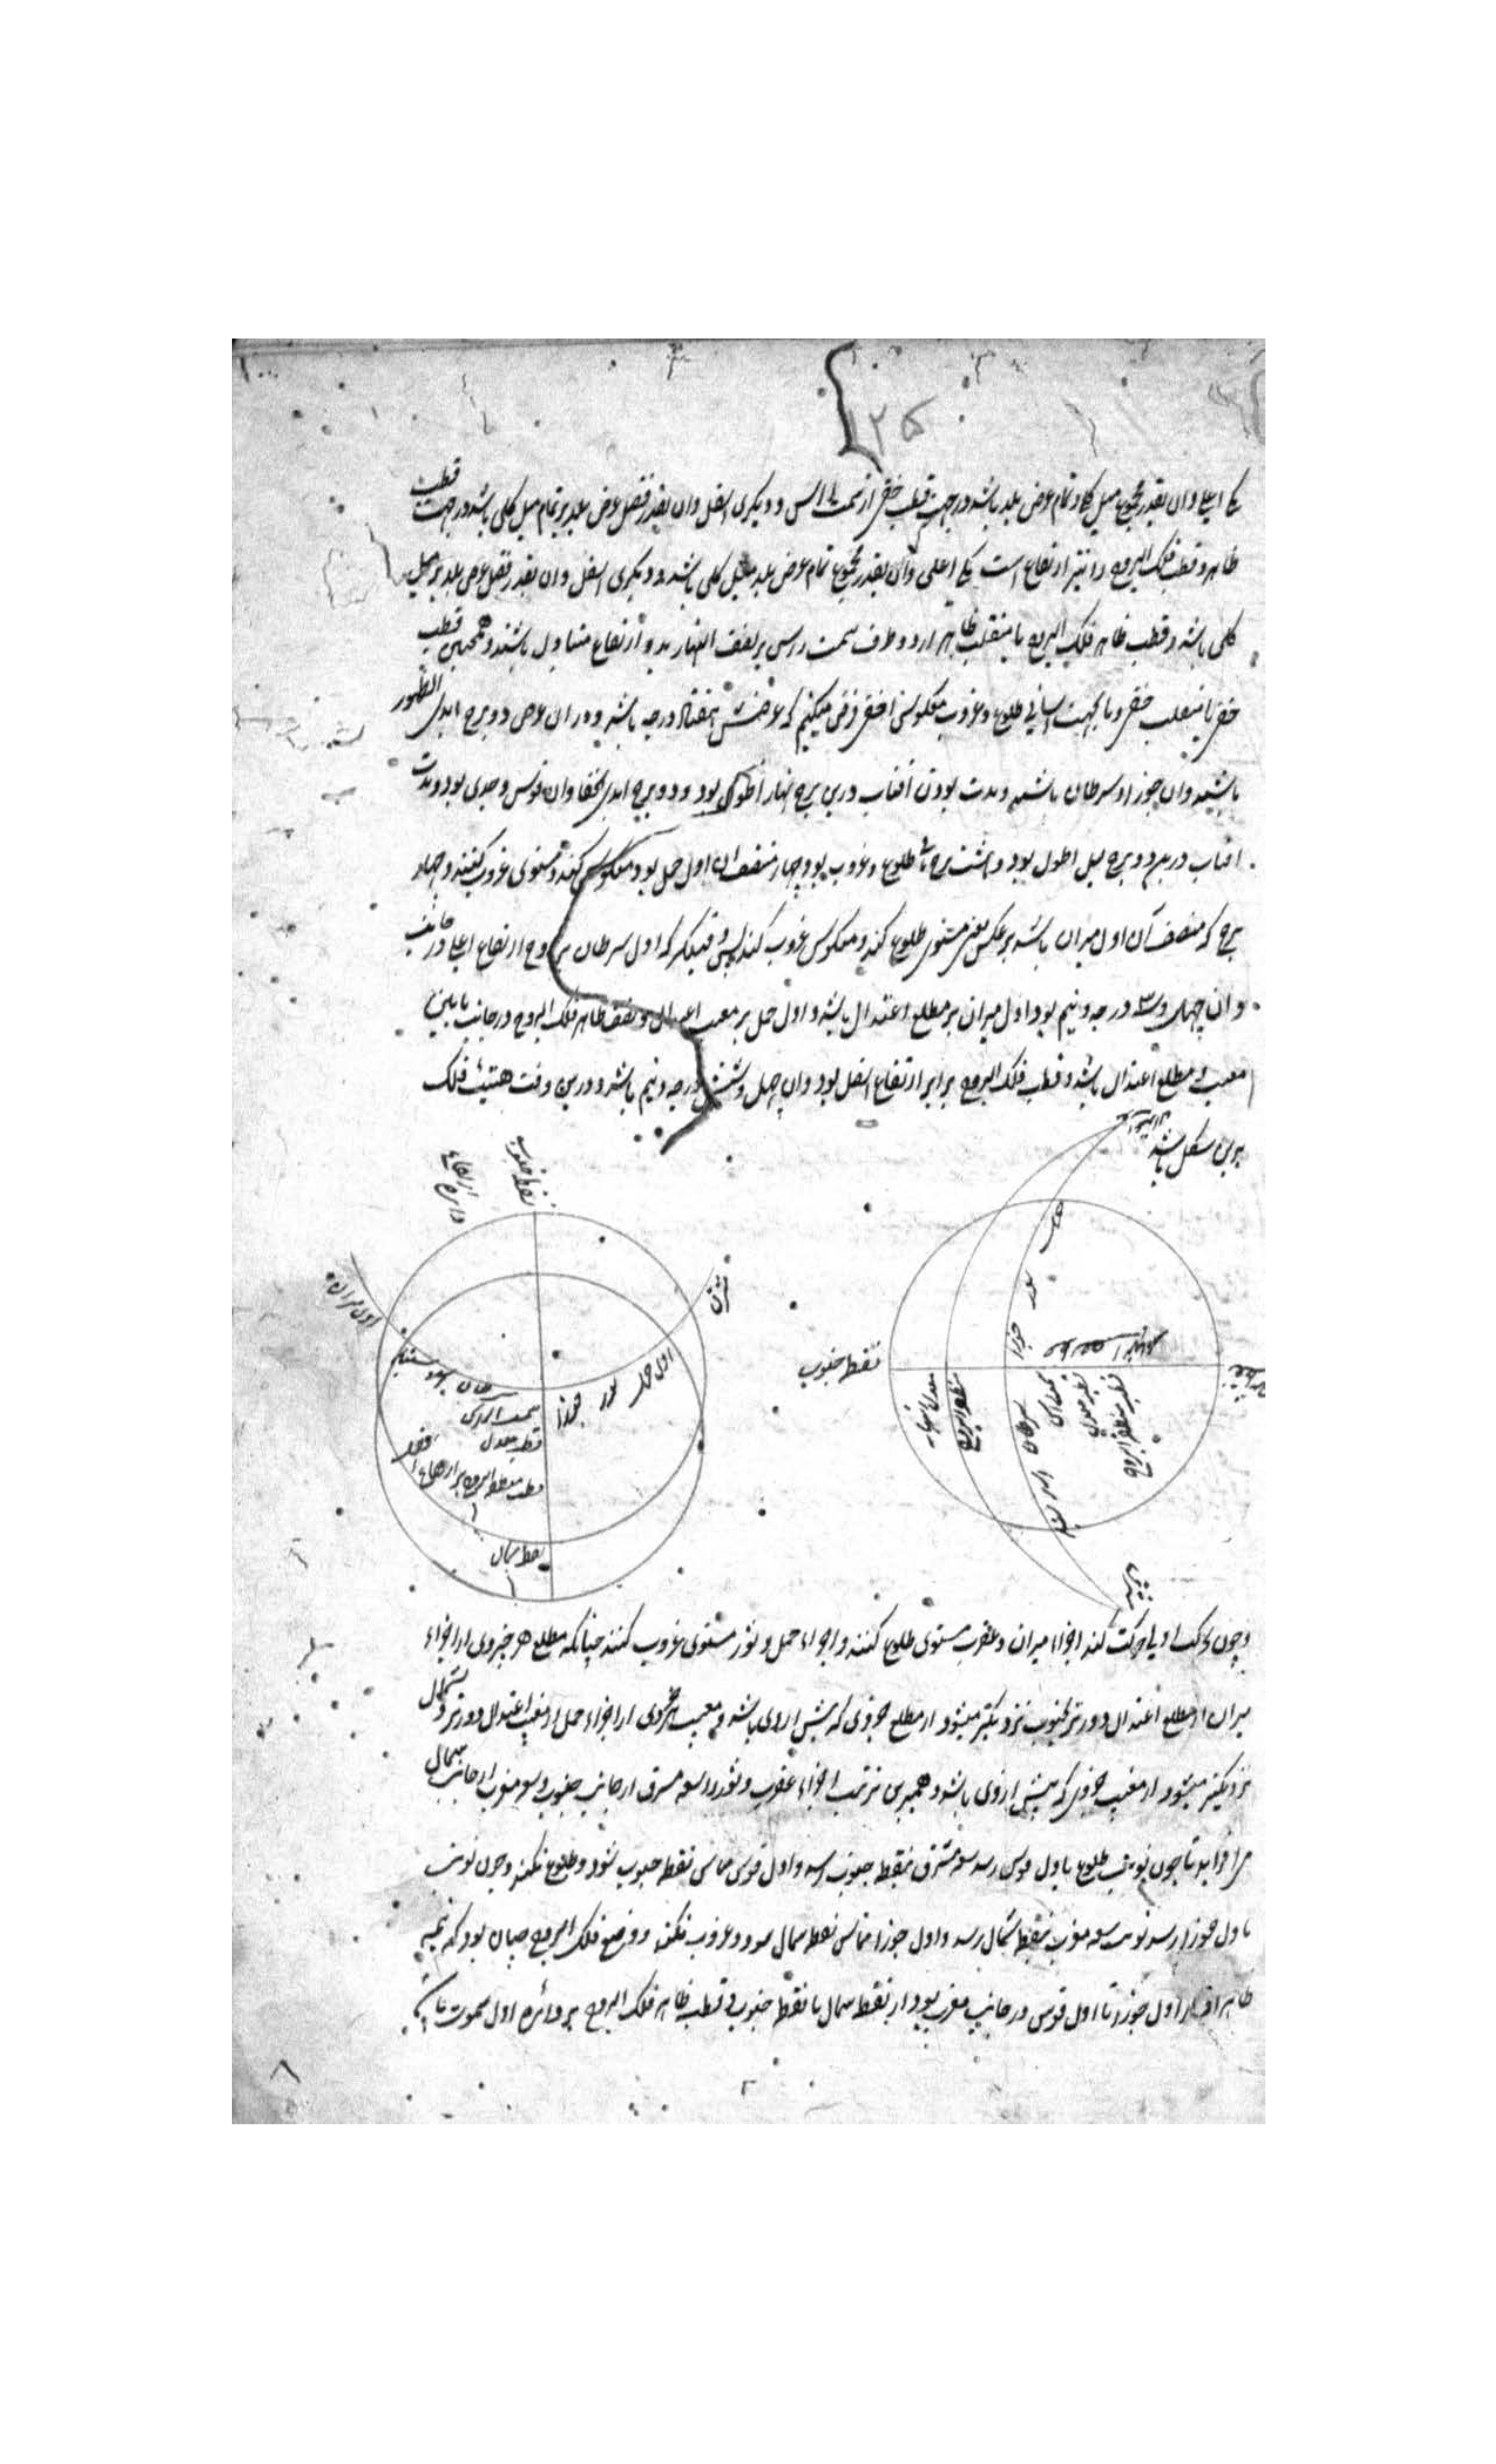 ۱۲۵
یکی اعلی و ان بقدر مجموع میل کلی و تمام عرض بلد باشد در جهت قطب خفی از سمت الراس و دیگری اسفل وان بقدر فضل عرض بلد بر تمام میل کلی باشد در جهت قطب
ظاهر و قطب فلک البروج را نیز دو ارتفاع است یکی اعلی وان بقدر مجموع تمام عرض بلد و میل کلی باشد و دیگری اسفل وان بقدر فضل عرض بلد بر میل
کلی باشد و قطب ظاهر فلک البروج با منقلب ظاهر از دو طرف سمت راس بر نصف النهار بدو ارتفاع متبادل باشند و همچنین قطب
خفی با منقلب خفی و ما بجهت اسانی طلوع و غروب معکوس افقی فرض میکنیم که عرضش هفتاد درجه باشد و دران عرض دو برج ابدی الظهور
باشند وان جوزا و سرطان باشند و مدت بودن افتاب درین برج نهار اطول بود و دو برج ابدی الخفا وان قوس و جدی بود و مدت
افتاب درین دو برج لیل اطول بود و هشت برج را طلوع و غروب بود چهار منتصف ان اول حمل بود معکوس طلوع کند و مستوی غروب کنند و چهار
برج که منتصف آن اول میزان باشد بر عکس یعنی مستوی طلوع کند و معکوس غروب کند پس وقتیکه که اول سرطان بر اوج ارتفاع اعلی در جانب
وان چهل و سه درجه و نیم بود اول میزان بر مطلع اعتدال باشد و اول حمل بر مغیب اعتدال و نصف ظاهر فلک البروج در جانب مابین
مغیب و مطلع اعتدال باشد و قطب فلک البروج برابر ارتفاع اسفل بود وان چهل و شش درجه و نیم باشد و درین وقت هیئت فلک
برین شکل باشد
نقطه جنوب
دایره ارتفاع
مشرق
اول میزان
اول حمل ثور جوزا
سرطان اسد سنبله
سمت الراس
قطب معدل
نقطه شمال
نقطه جنوب
حمل ثور جوزا
سرطان اسد سنبله
معدل النهار
منطقه البروج
سمت الراس
قطب معدل
قطب منطقه البروج
وچون فلک اول حرکت کند اجزاء میزان و عقرب مستوی طلوع کنند و اجزاء حمل و ثور مستوی غروب کنند چنانکه مطلع هر جزوی از اجزاء
میزان از مطلع اعتدال دورتر و بجنوب نزدیکتر میشود از مطلع جزوی که پیش از وی باشد و مغیب هر جزوی از اجزاء حمل از مغیب اعتدال دورتر و بشمال
نزدیکتر میشود از مغیب جزوی که پیش از وی باشد و همبرین ترتیب اجزاء عقرب و ثور و سعه مشرق از جانب جنوب و سعه مغرب از جانب شمال
می افزاید تا چون نوبت طلوع باول قوس رسد سعه مشرق بنقطه جنوب رسد و اول قوس مماس نقطه جنوب شود و طلوع نکند و چون نوبت
باول جوزا رسد نوبت سعه مغرب بنقطه شمال رسد و اول جوزا مماس نقطه شمال شود و غروب نکند و وضع فلک البروج چنان بود که نیمه
ظاهر از اول جوزا تا اول قوس در جانب مغرب بود از نقطه شمال تا نقطه جنوب و قطب ظاهر فلک البروج بر دائره اول سموت باشد